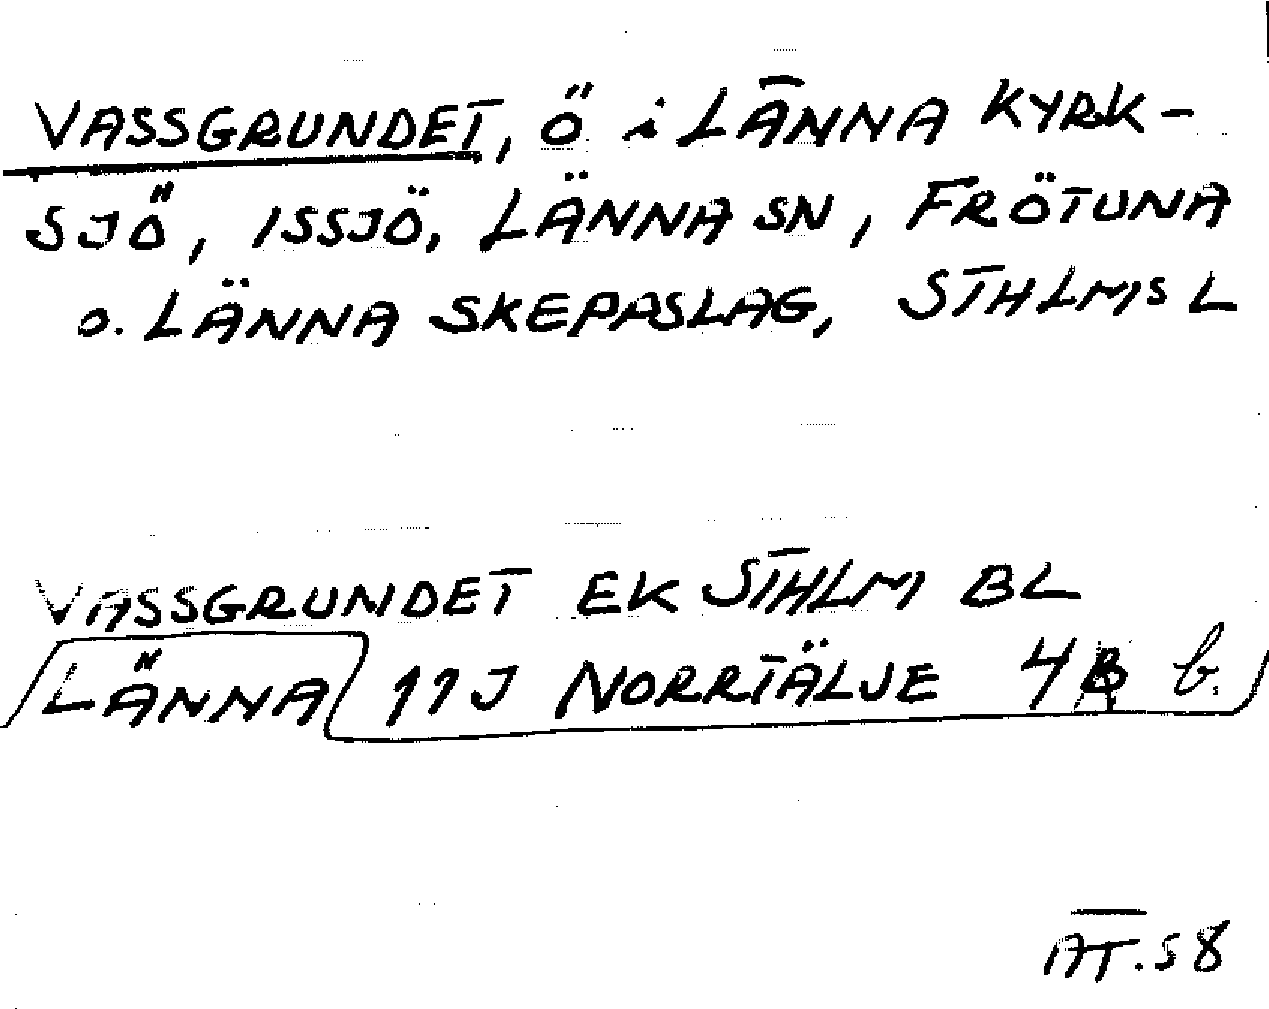 VASSGRUNDET, Ö i LÄNNA KYRK-
SJÖ, ISSJÖ, LÄNNA SN, FRÖTUNA
o. LÄNNA SKEPPSLAG, STHLMS L
VASSGRUNDET EK STHLM BL
LÄNNA 11J NORRTÄLJE 4 b.
AT.58